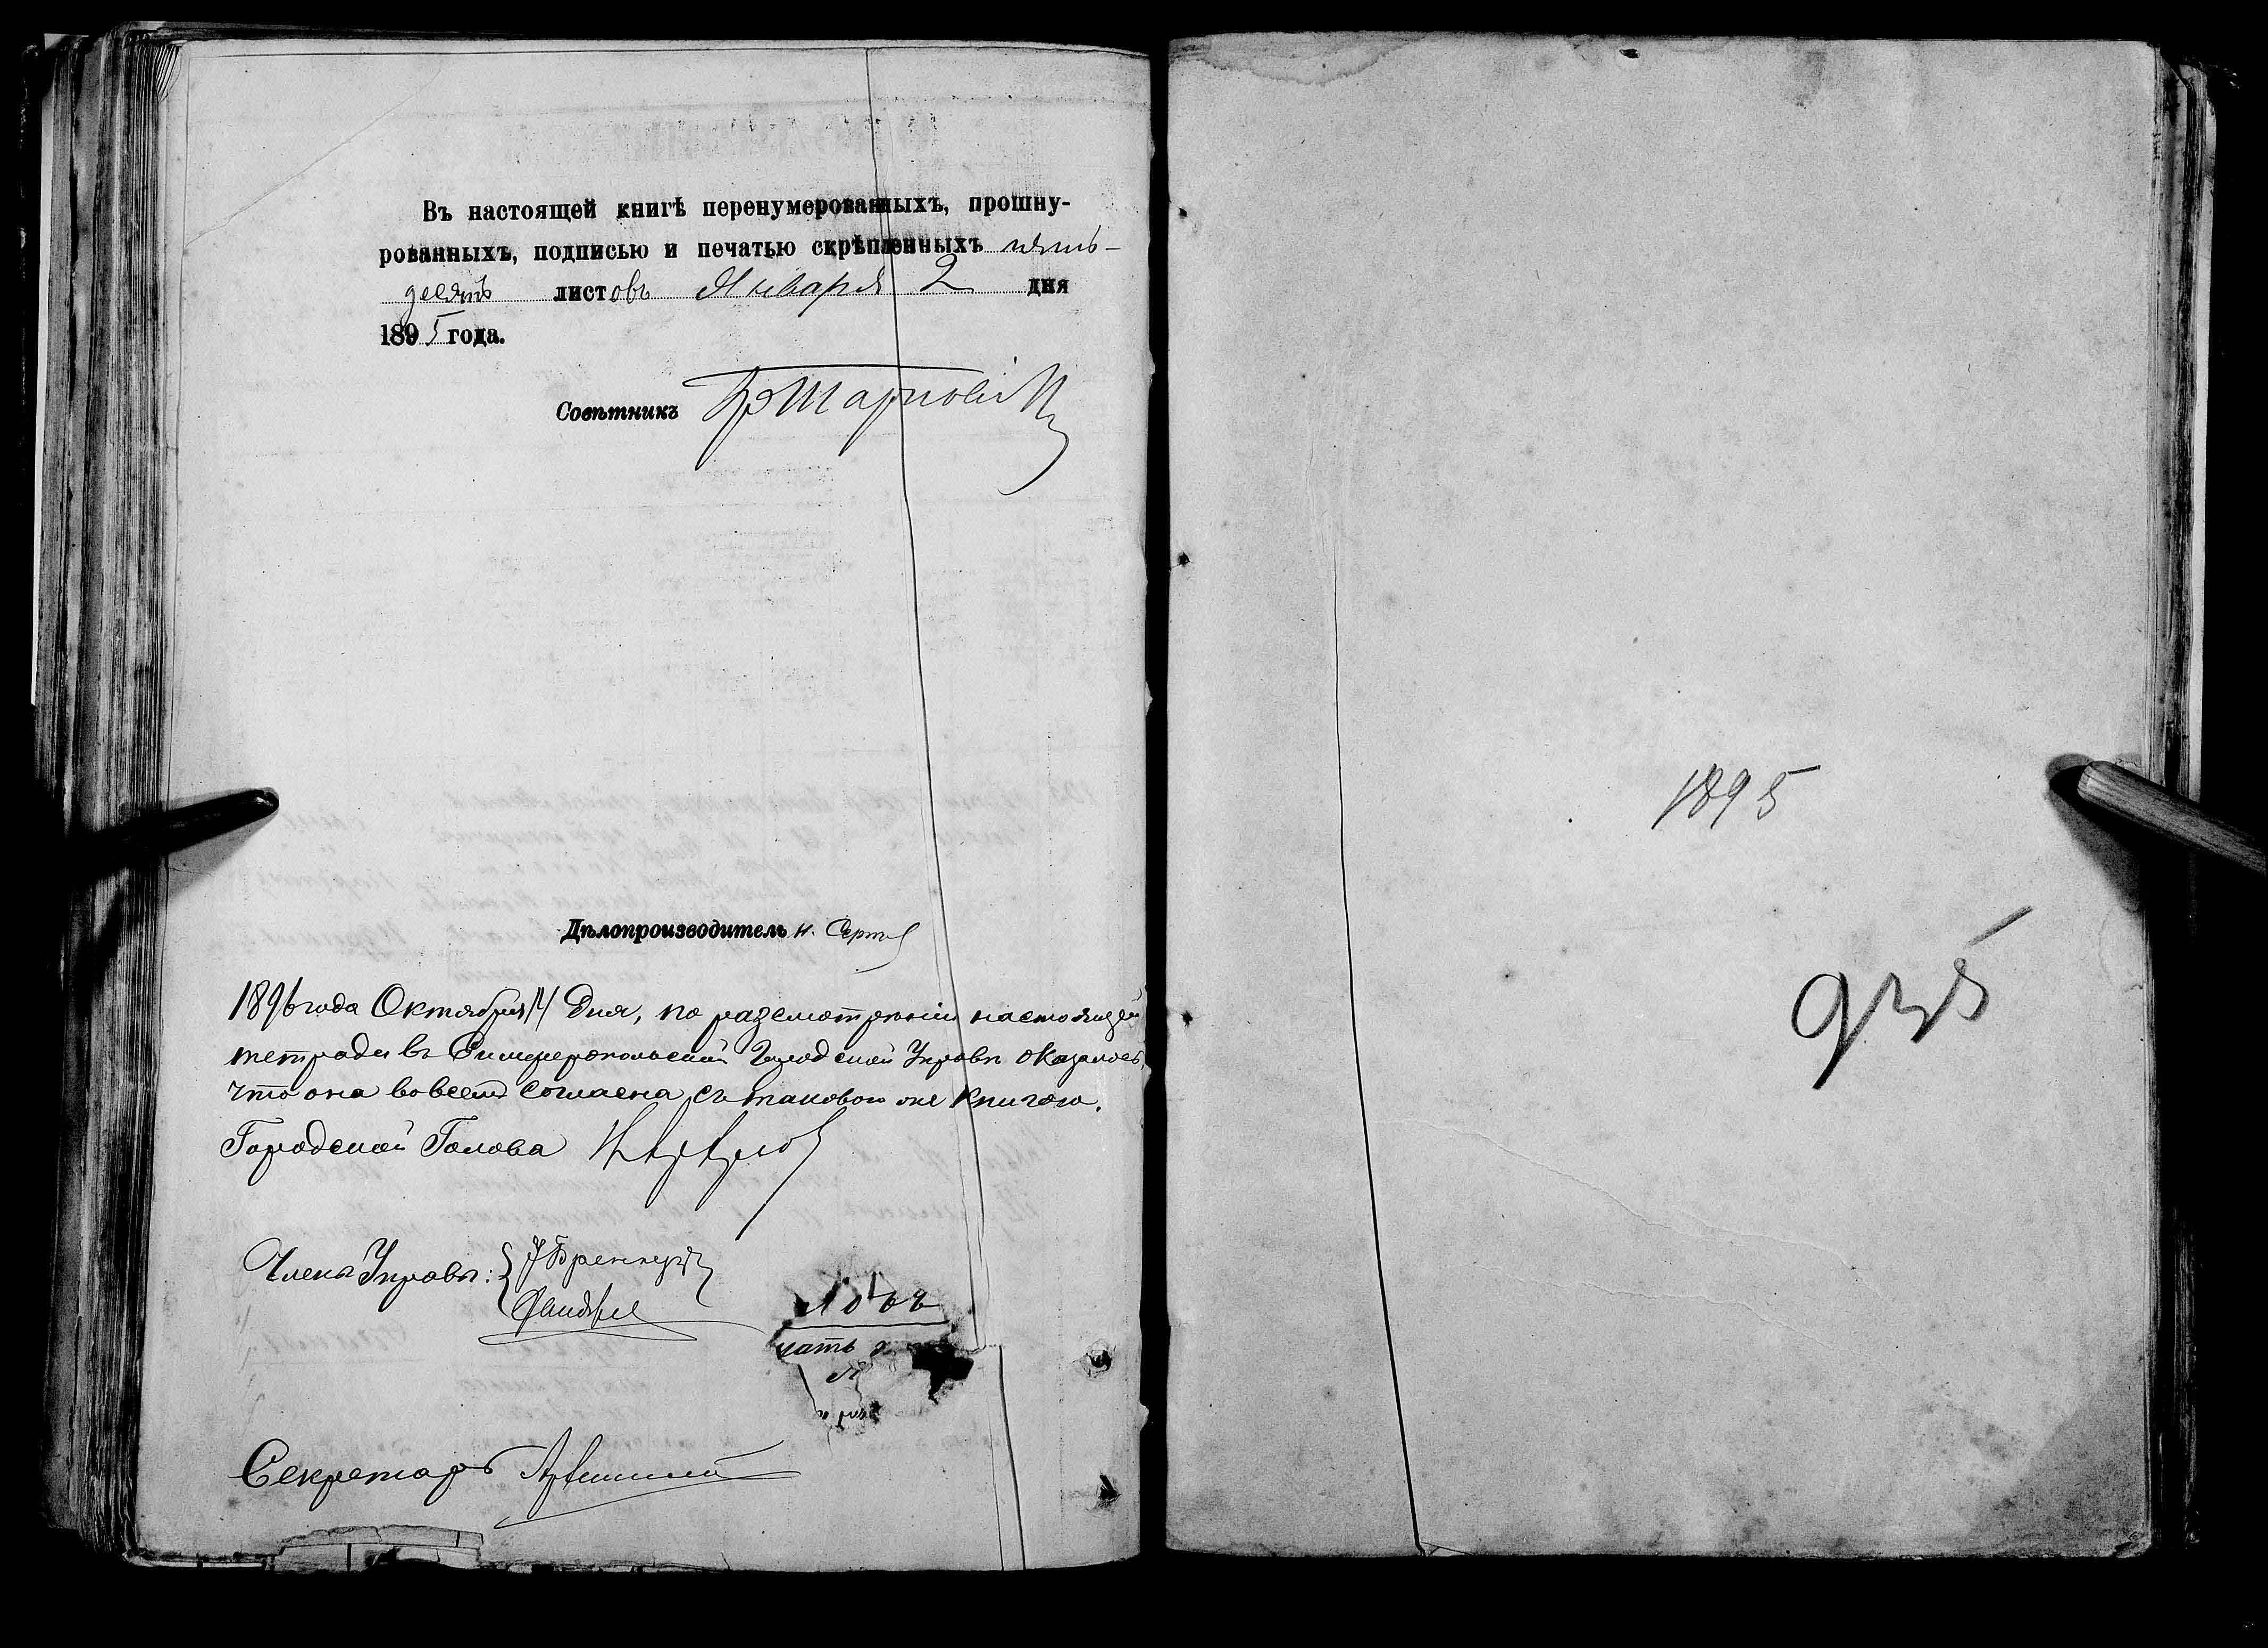 Въ настоящей книгѣ перенумерованныхъ, прошну-
рованныхъ, подписью и печатью скрѣпленныхъ пять-
десятъ листовъ Января 2 дня
1895 года.
Совѣтникъ
Дѣлопроизводитель Н.
1896 года Октября 14 Дня, по разсмотрѣніи настоящей
тетради въ Симферопольской Городской Управѣ оказалось,
что она во всемъ согласна съ таковою же книгою.
Городской Голова
Члены Управы:
Секретарь
1895